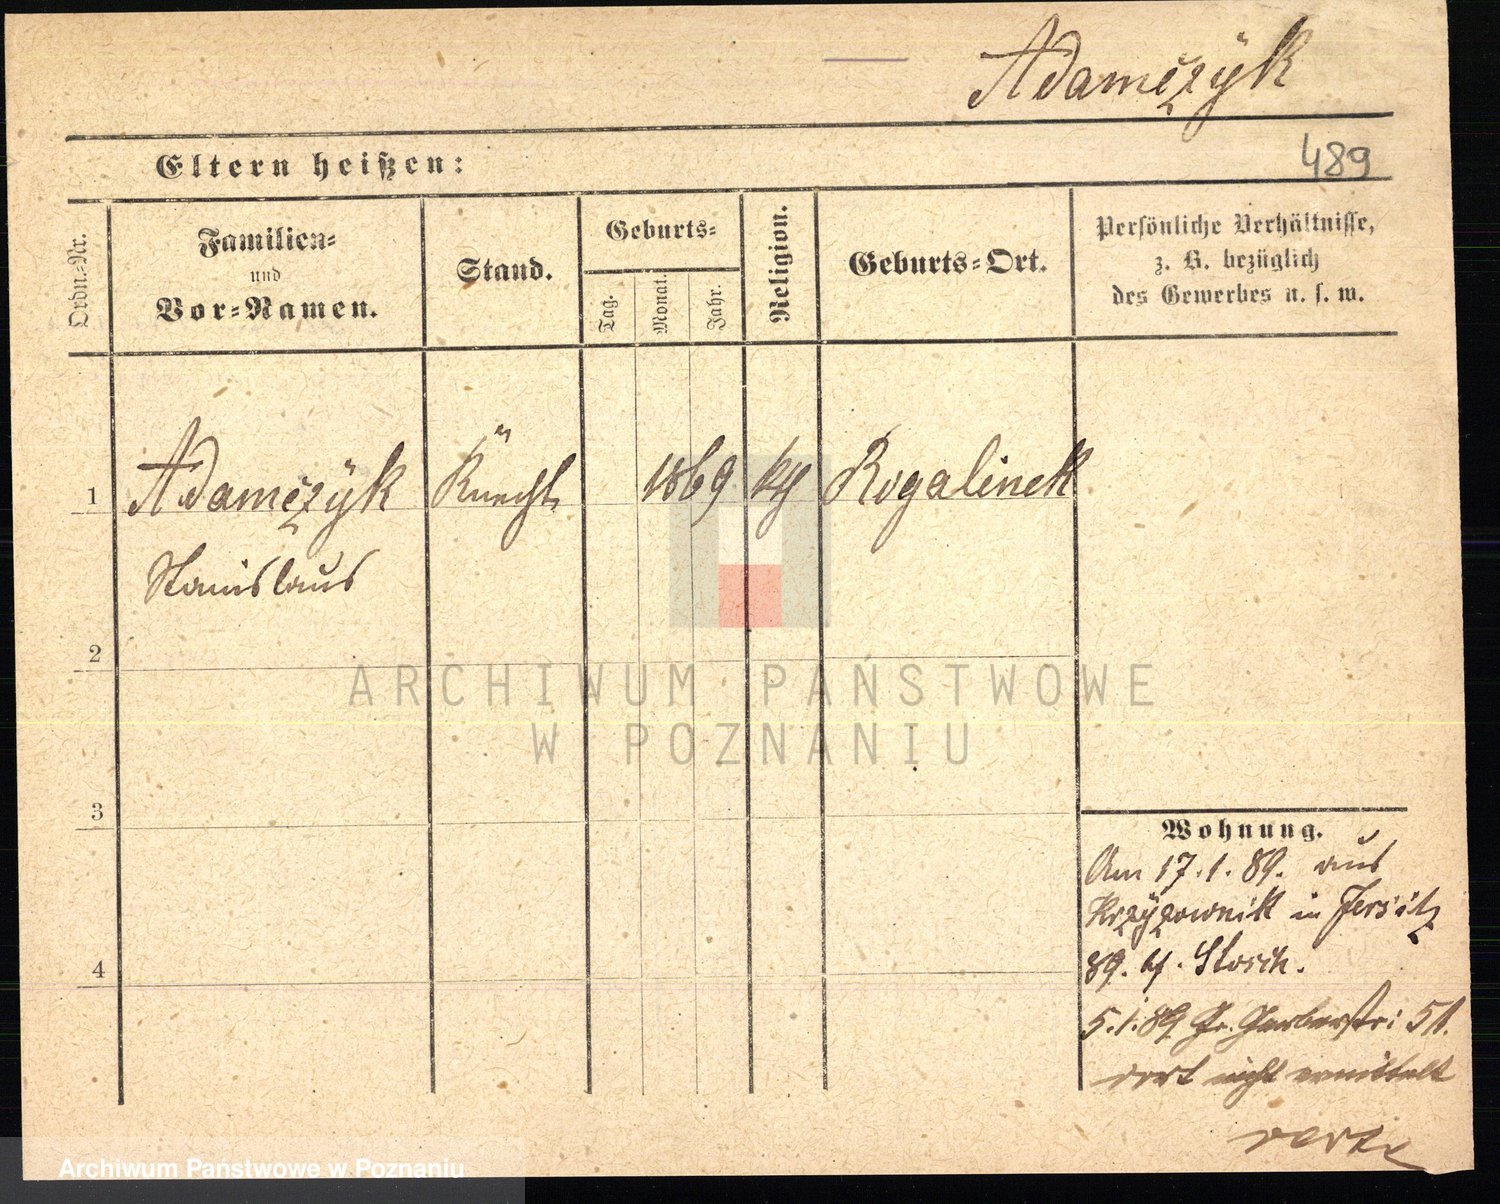 Adamczÿk
489
Eltern heißen:
Ordn.-Nr.
Familien-
und
Vor-Namen.
Stand.
Geburts-
Tag.
Monat.
Jahr.
Religion.
Geburts-Ort.
Persönliche Verhältnisse,
z. B. bezüglich
des Gewerbes u. s. w.
1 Adamczÿk Knecht 1869 kth Rogalinek
Stanislaus
2
3
4
Wohnung.
Am 17.1.89. aus
Krzÿzownik in Jersitz
89. b/. Storch.
5.1.89 Gr. Gerberstr: 51.
dort nicht ermittelt
ARCHIWUM PAŃSTWOWE
W POZNANIU
Archiwum Państwowe w Poznaniu